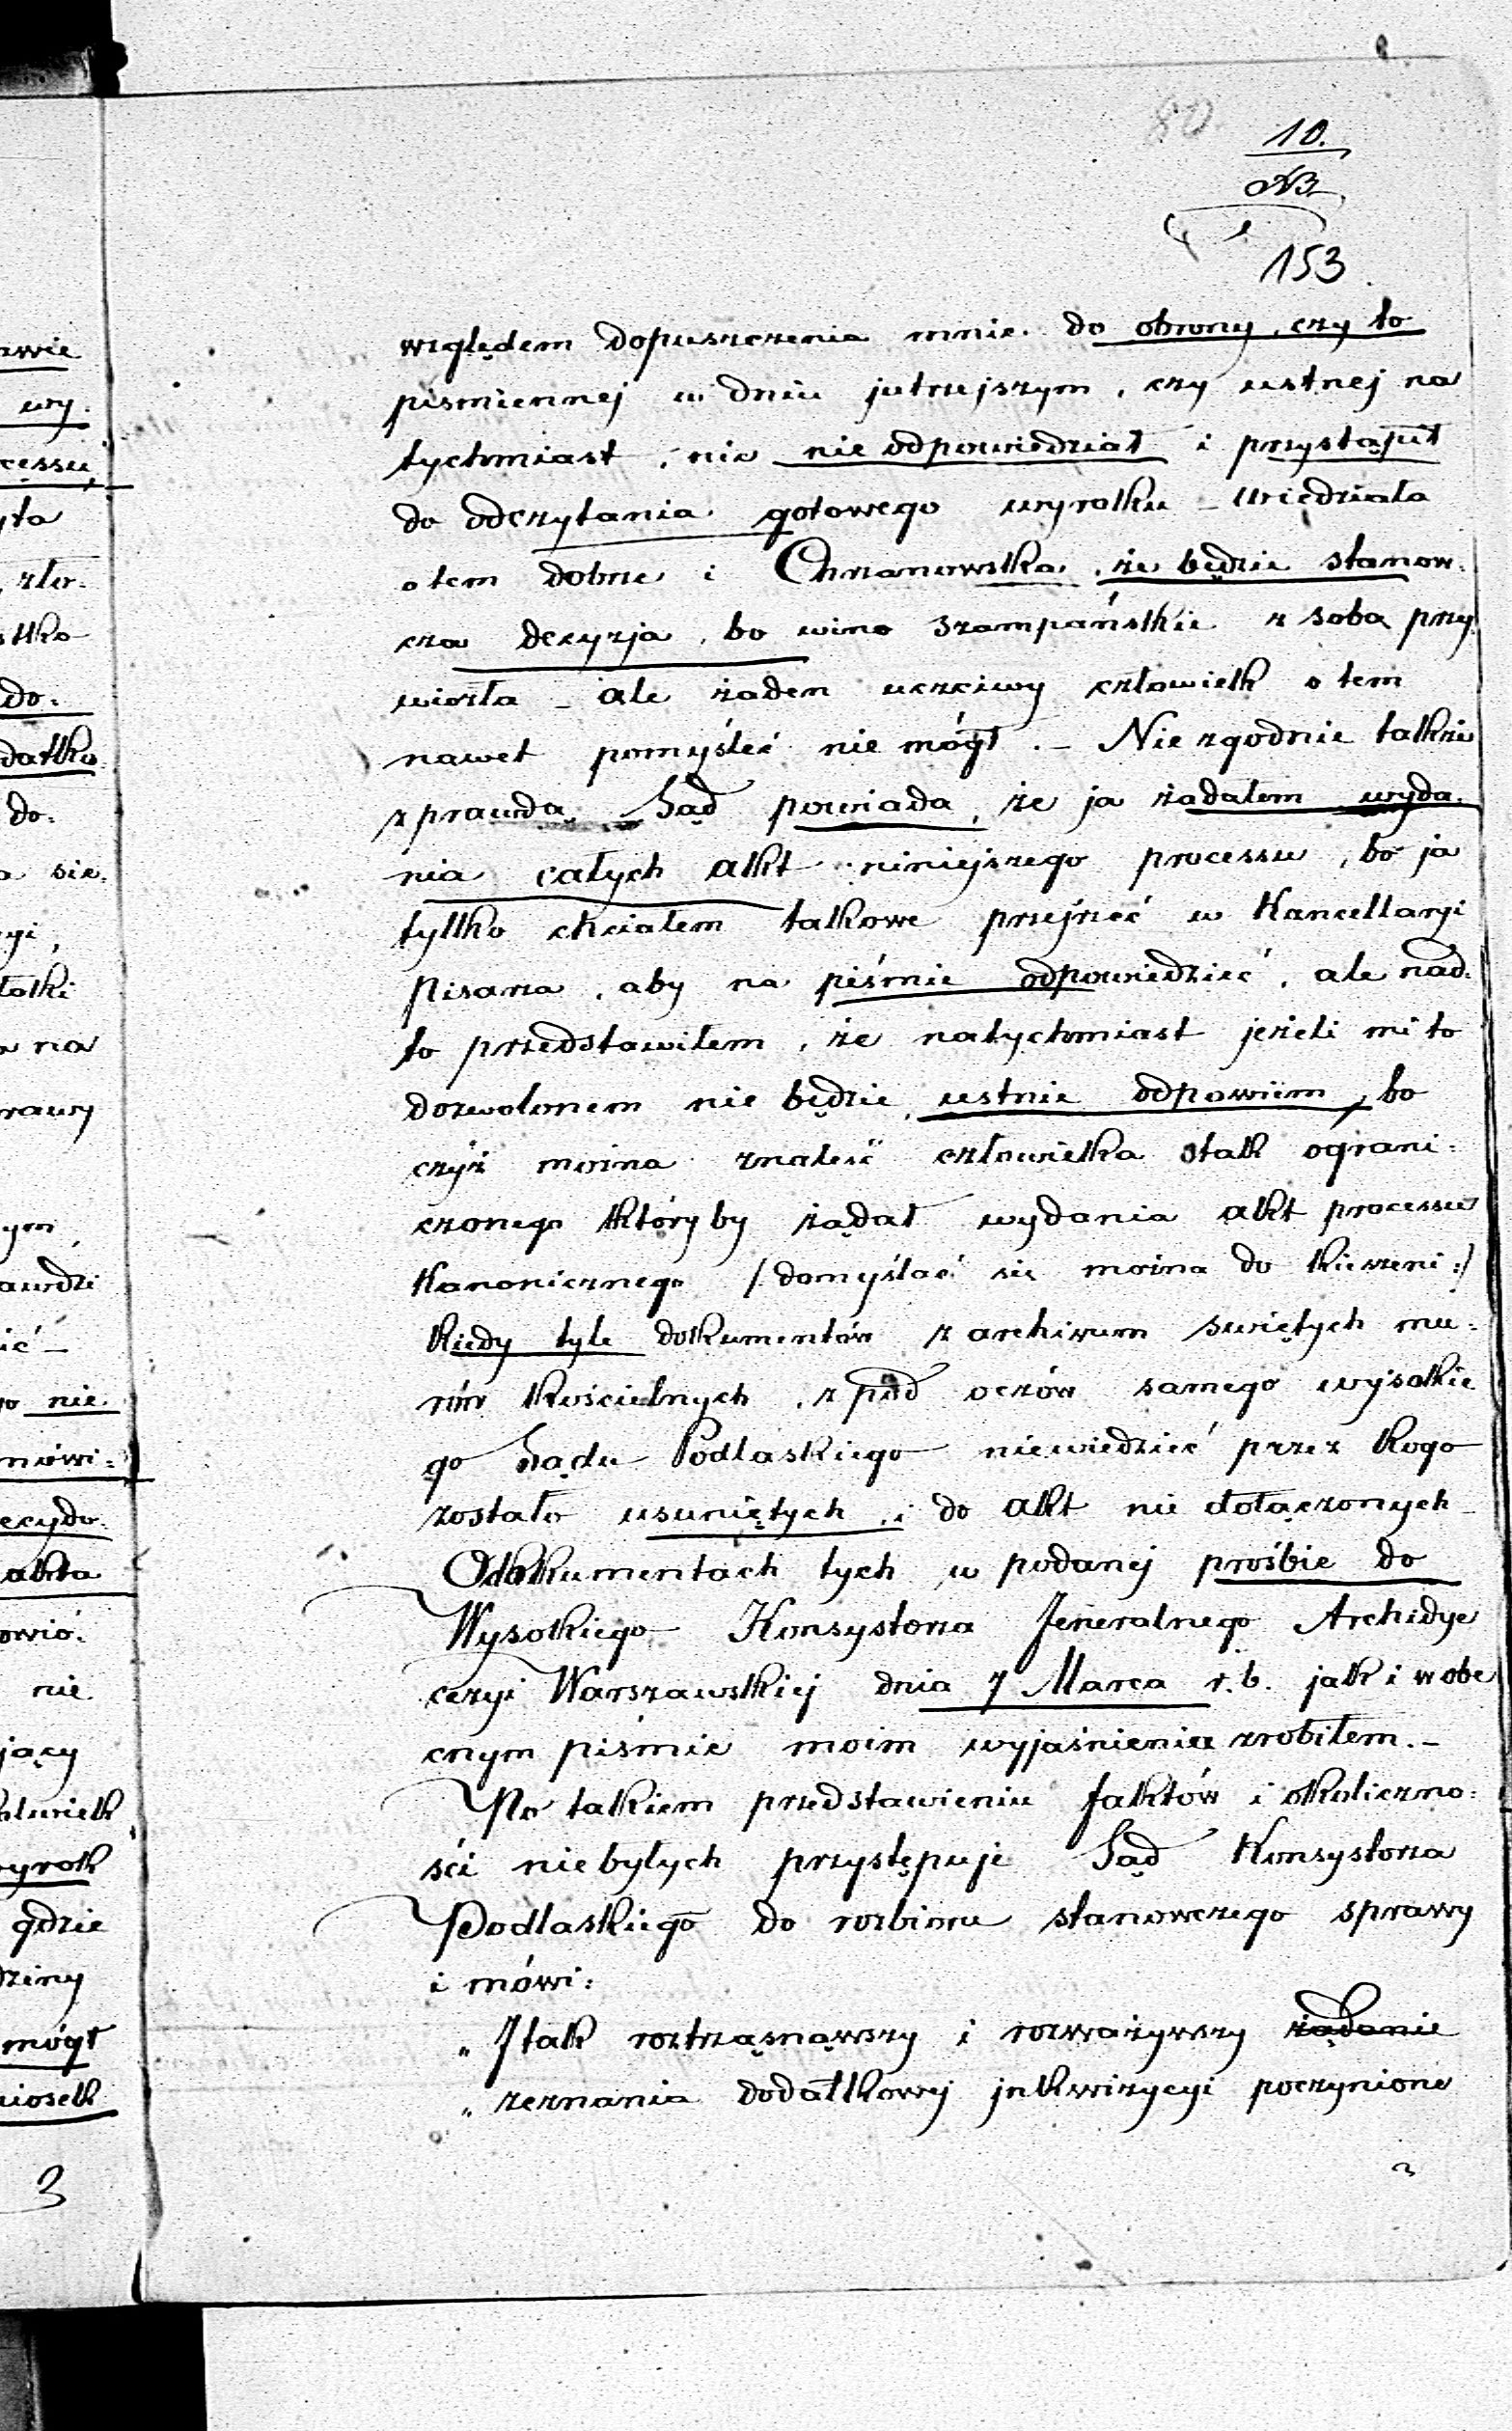 80
10.
NB
153
względem dopuszczenia mnie do obrony, czy to
pismiennej w dniu jutrzejszym, czy ustnej na
tychmiast, nic nie odpowiedział i przystąpił
do odczytania gotowego wyroku – wiedziała
o tem dobrze i Chrzanowska, że będzie stanow:
cza decyzja, bo wino szampańskie z sobą przy
wiozła – ale żaden uczciwy człowiek o tem
nawet pomyśleć nie mógł. – Nie zgodnie także
z prawdą Sąd powiada, że ja żądałem wyda:
nia całych akt niniejszego processu, bo ja
tylko chciałem takowe przejrzeć w Kancellaryi
Pisarza, aby na piśmie odpowiedzieć, ale nad:
to przedstawiłem, że natychmiast jeżeli mi to
dozwolonem nie będzie, ustnie odpowiem, bo
czyż można znaleść człowieka tak ograni:
czonego któryby żądał wydania akt processu
Kanonicznego /: domyślać się można do kieszeni :/
kiedy tyle dokumentów z archiwum swiętych mu:
rów kościelnych, z pod oczów samego wysokie
go Sądu Podlaskiego niewiedzieć przez kogo
zostało usuniętych, i do akt nie dołączonych –
O dokumentach tych w podanej prośbie do
Wysokiego Konsystorza Jeneralnego Archidye
cezyi Warszawskiej dnia 7 Marca r. b. jak i w obe
cnym piśmie moim wyjaśnienie zrobiłem. –
Po takiem przedstawieniu faktów i okoliczno:
ści niebyłych przystępuje Sąd Konsystorza
Podlaskiego do rozbioru stanowczego sprawy
i mówi:
„ I tak roztrząsnąwszy i rozważywszy żądanie
„ zeznania dodatkowej inkwizycyi poczynione
3